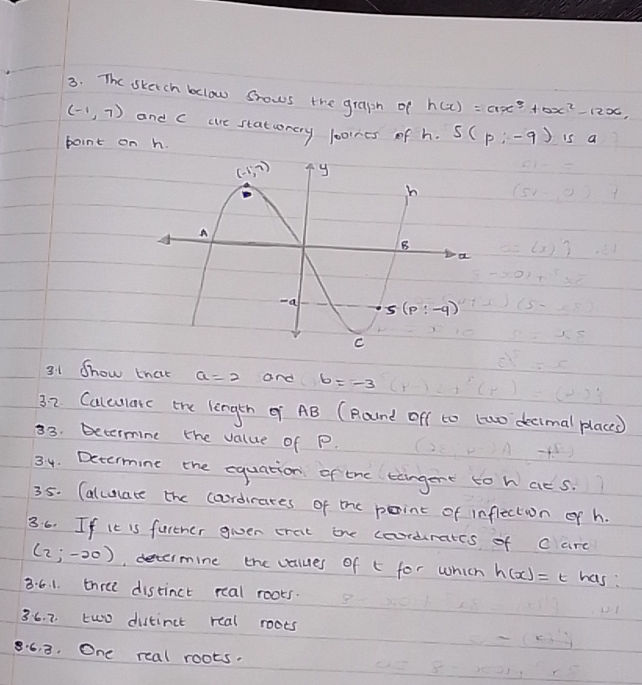 3. The sketch below shows the graph of h(x) = ax³ + bx² - 12x,
(-1, 7) and C are stationery points of h. S(p ; -9) is a
point on h.
(-1;7)
y
h
A
B
x
-9
S (p ; -9)
C
3.1 Show that a=2 and b=-3
3.2 Calculate the length of AB (Round off to two decimal places)
33. Determine the value of P.
3.4. Determine the equation of the tangent to h at S.
35. Calculate the coordinates of the point of inflection of h.
3.6. If it is further given that the coordinates of C are
(2; -20), determine the values of t for which h(x)= t has:
3.6.1. three distinct real roots.
3.6.2. two distinct real roots
3.6.3. One real roots.